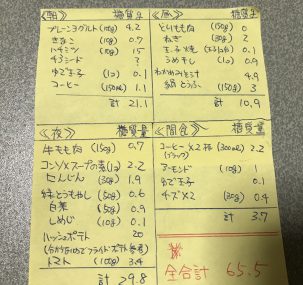 《朝》 糖質量
プレーンヨーグルト(100g) 4.2
きなこ (10g) 0.7
ハチミツ (10g) 15
チアシード ?
ゆで玉子 (1コ) 0.1
コーヒー (150ml) 1.1
計 21.1
《昼》 糖質量
とりもも肉 (150g) 0
ねぎ (30g) 2
玉子焼き (玉子1コ分) 0.1
うめ干し (1コ) 0.9
わかめみそ汁 4.9
絹とうふ (150g) 3
計 10.9
《夜》 糖質量
牛もも肉 (150g) 0.7
コンソメスープの素(1コ) 2.2
にんじん (30g) 1.9
緑豆もやし (50g) 0.6
白菜 (50g) 0.9
しめじ (10g) 0.1
ハッシュポテト 20
トマト (100g) 3.4
計 29.8
《間食》 糖質量
コーヒー×2杯 (300ml) 2.2
(ブラック)
アーモンド (10g) 1
ゆで玉子 0.1
チーズ×2 (30g) 0.4
計 3.7
全合計 65.5